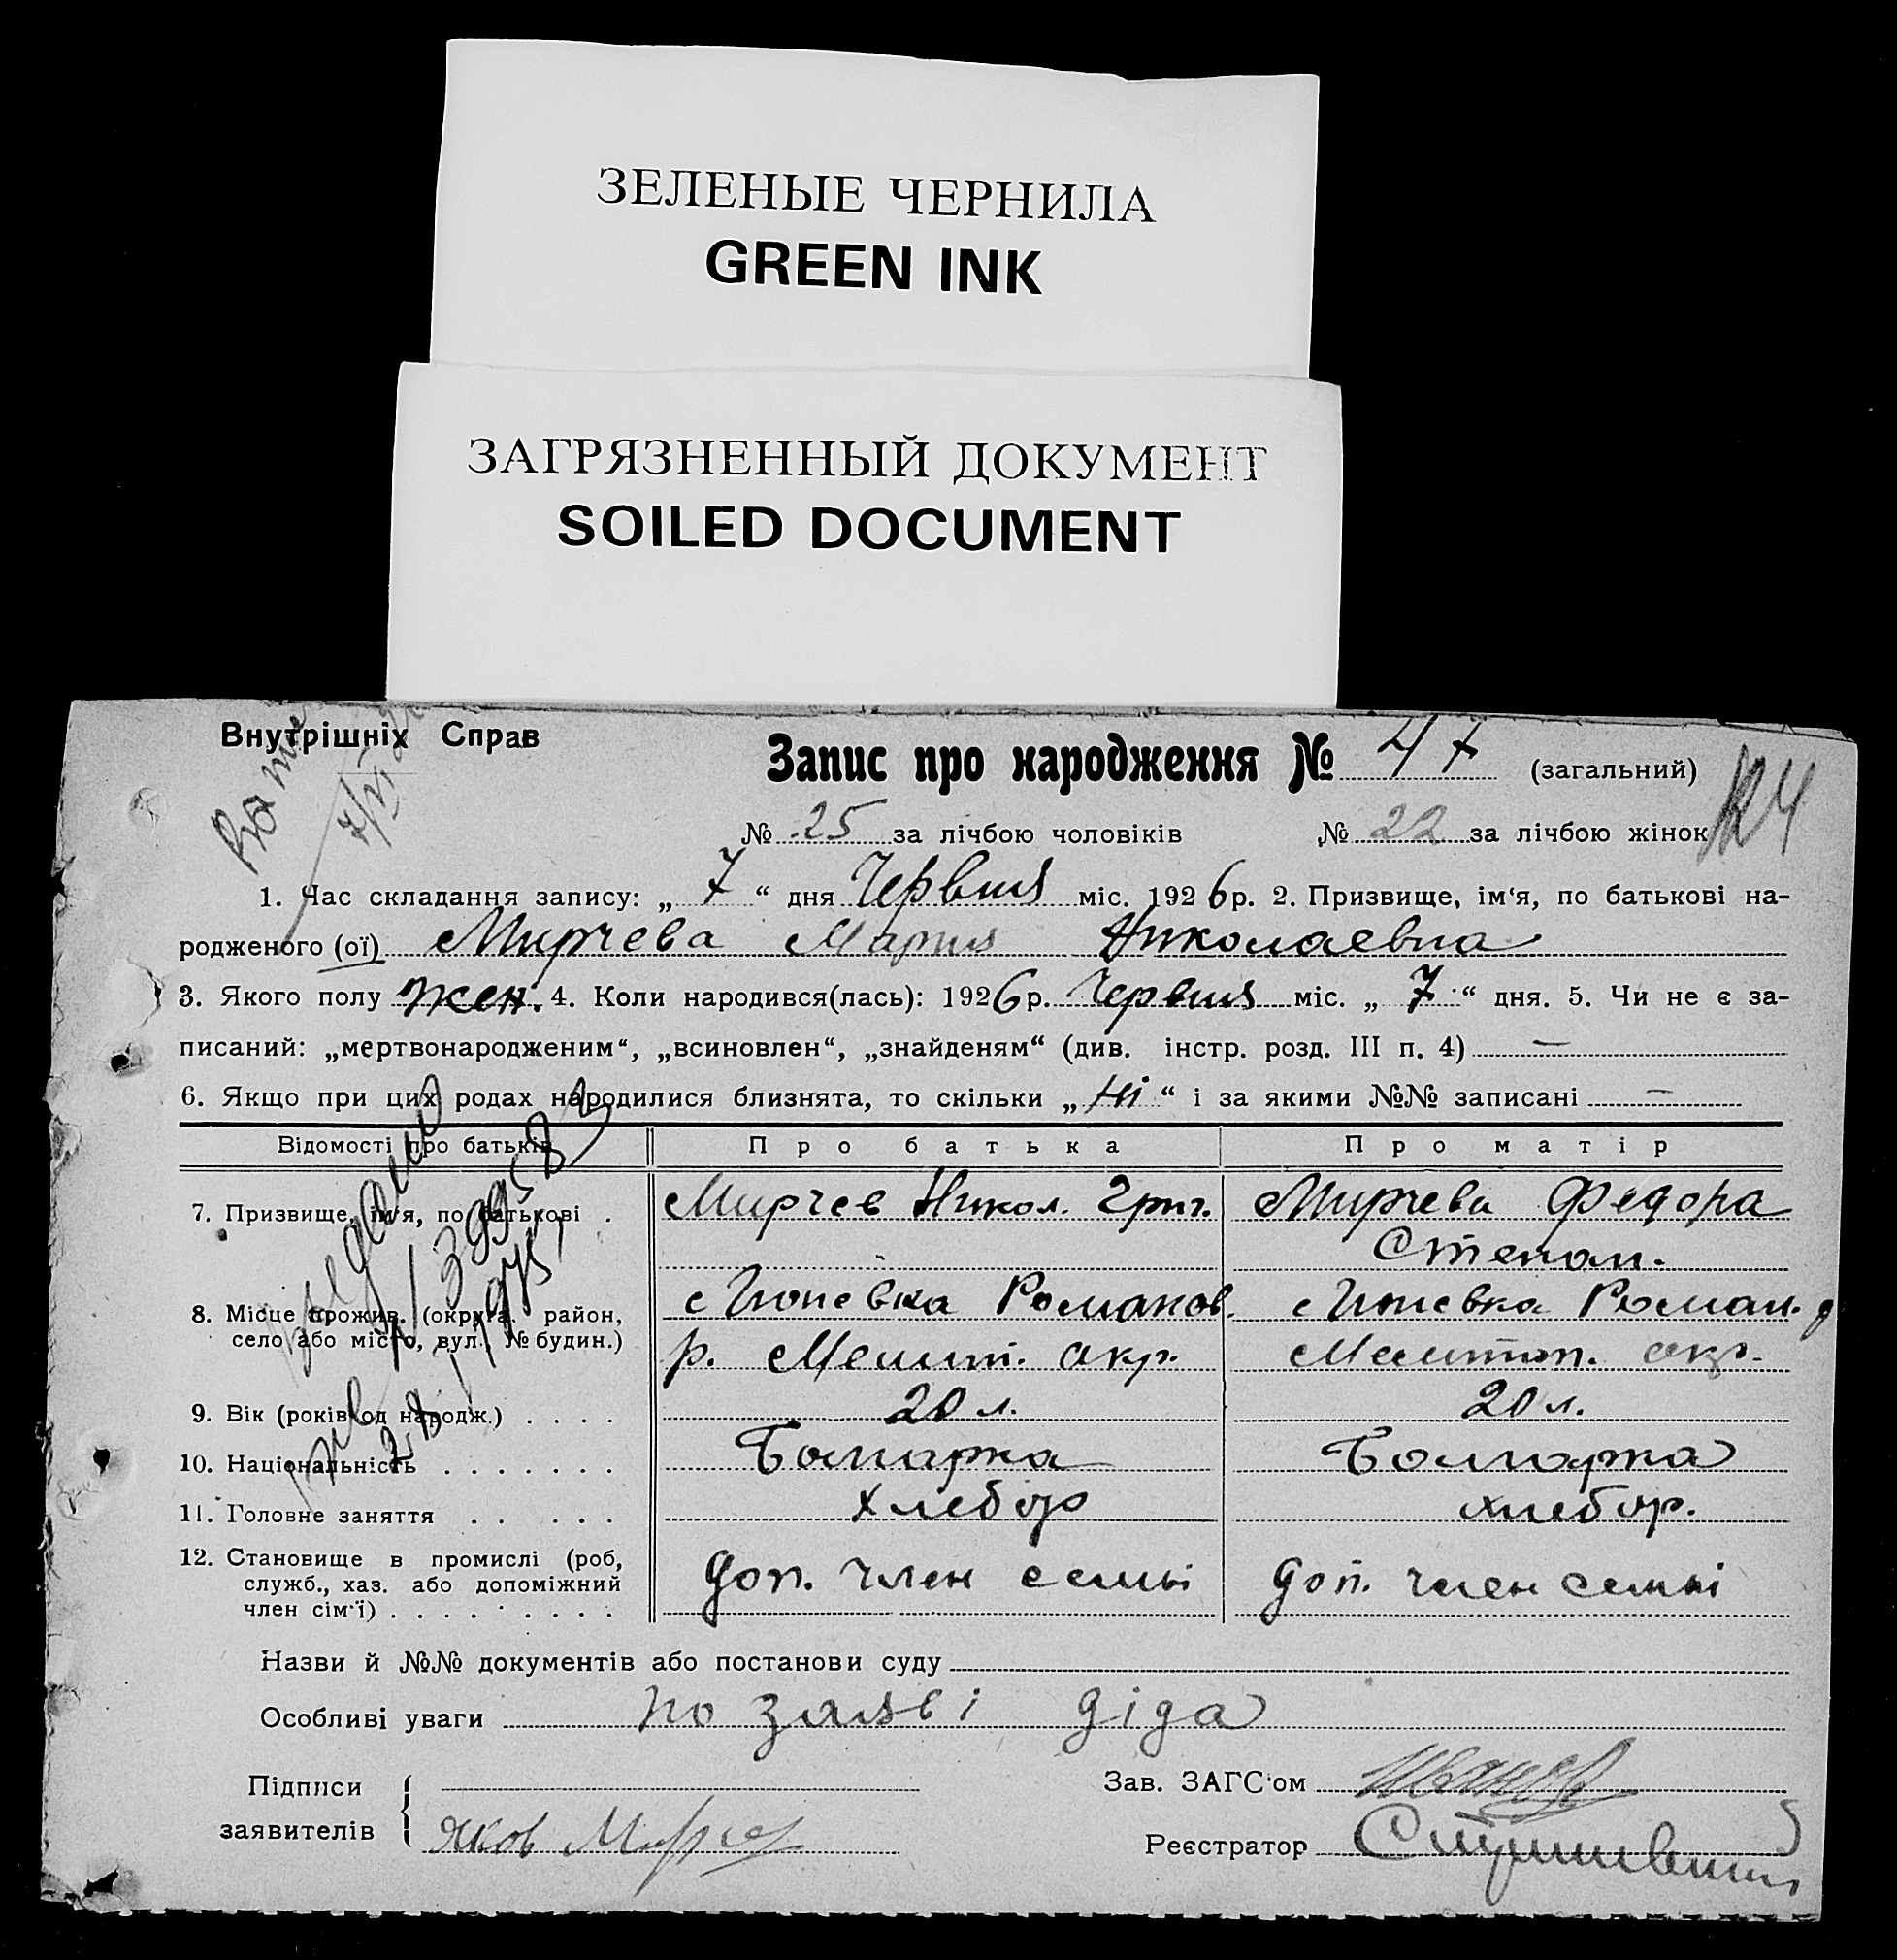 ЗЕЛЕНЫЕ ЧЕРНИЛА
GREEN INK
ЗАГРЯЗНЕННЫЙ ДОКУМЕНТ
SOILED DOCUMENT
Внутрішніх Справ
Запис про народження № 47 (загальний)
124
№ 25 за лічбою чоловіків № 22 за лічбою жінок
1. Час складання запису: „ 7 “ дня Червня міс. 1926 р. 2. Призвище, ім‘я, по батькові на-
родженого (ої) Мирчева Мария Николаевна
3. Якого полу жен. 4. Коли народився(лась): 1926 р. Червня міс. „ 7 “ дня. 5. Чи не є за-
писаний: „мертвонародженим“, „всиновлен“, „знайденям“ (див. інстр. розд. III п. 4) —
6. Якщо при цих родах народилися близнята, то скільки „ Ні “ і за якими №№ записані —
Відомості про батьків Про батька Про матір
7. Призвище, ім‘я, по батькові . Мирчев Никол. Григ. Мирчева Федора
Степан.
8. Місце прожив. (округа, район, с Романов. с Роман.
село або місто, вул., № будин.) р. Мелит. окр. Мелитоп. окр.
9. Вік (років од народж.) . . . . 20 л. 20 л.
10. Національність . . . . . . . Болгарка Болгарка
11. Головне заняття . . . . . хлебор хлебор.
12. Становище в промислі (роб, доп. член семьі доп. член семьі
служб., хаз. або допоміжний
член сім‘ї) . . . . . . . . .
Назви й №№ документів або постанови суду
Особливі уваги по заяві діда
Підписи Зав. ЗАГС‘ом Иванов
заявителів Яков Мирчев Реєстратор